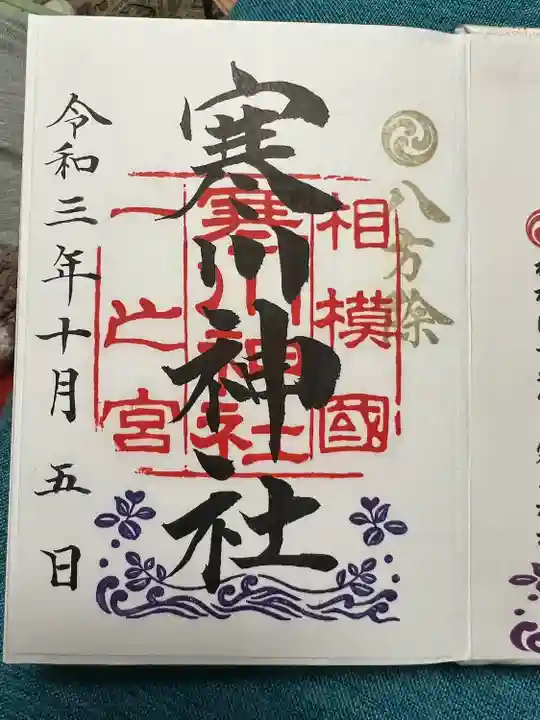 八方除
寒川神社
相模國
寒川神社
一之宮
令和三年十月五日